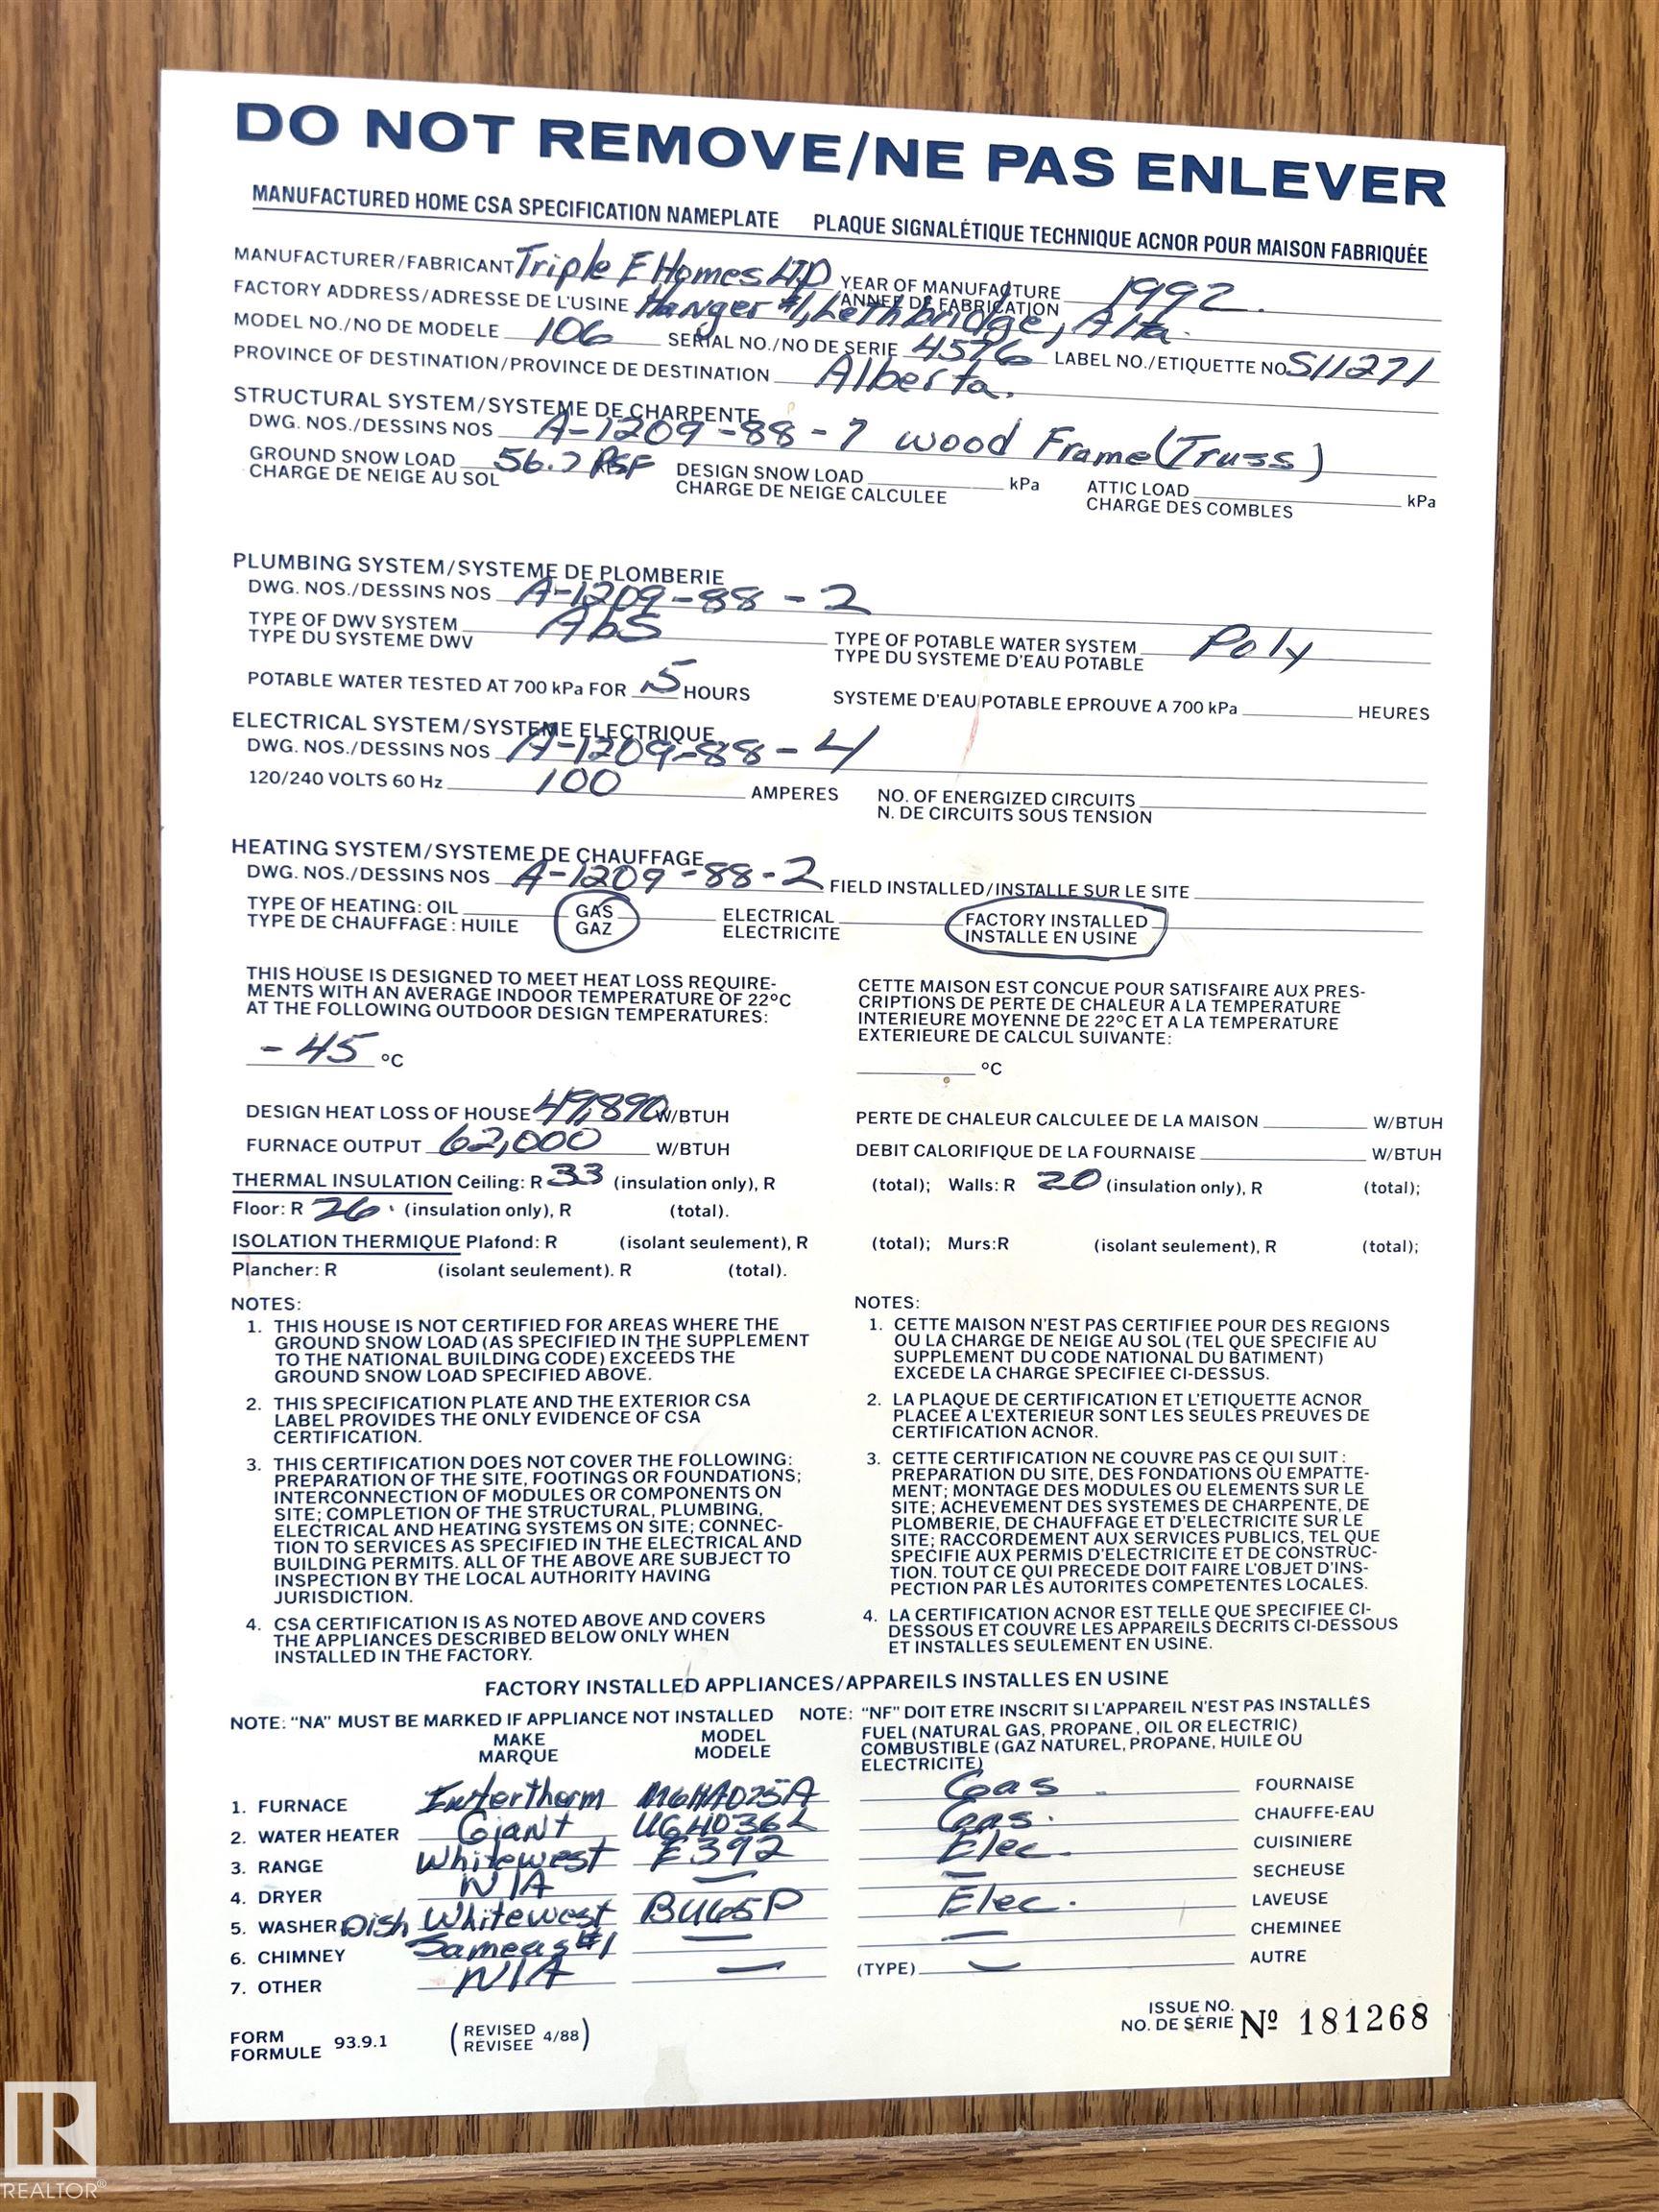 DO NOT REMOVE/NE PAS ENLEVER
MANUFACTURED HOME CSA SPECIFICATION NAMEPLATE PLAQUE SIGNALÉTIQUE TECHNIQUE ACNOR POUR MAISON FABRIQUÉE
MANUFACTURER/FABRICANT Triple E Homes LTD YEAR OF MANUFACTURE 1992.
ANNEE DE FABRICATION
FACTORY ADDRESS/ADRESSE DE L'USINE Hanger #1, Lethbridge, Alta.
MODEL NO./NO DE MODELE 106 SERIAL NO./NO DE SERIE 4576 LABEL NO./ETIQUETTE NO S11271
PROVINCE OF DESTINATION/PROVINCE DE DESTINATION Alberta.
STRUCTURAL SYSTEM/SYSTEME DE CHARPENTE
DWG. NOS./DESSINS NOS A-1209-88-7 wood Frame (Truss)
GROUND SNOW LOAD 56.7 PSF DESIGN SNOW LOAD kPa ATTIC LOAD kPa
CHARGE DE NEIGE AU SOL CHARGE DE NEIGE CALCULEE CHARGE DES COMBLES
PLUMBING SYSTEM/SYSTEME DE PLOMBERIE
DWG. NOS./DESSINS NOS A-1209-88-2
TYPE OF DWV SYSTEM AbS TYPE OF POTABLE WATER SYSTEM Poly
TYPE DU SYSTEME DWV TYPE DU SYSTEME D'EAU POTABLE
POTABLE WATER TESTED AT 700 kPa FOR .5 HOURS SYSTEME D'EAU POTABLE EPROUVE A 700 kPa HEURES
ELECTRICAL SYSTEM/SYSTEME ELECTRIQUE
DWG. NOS./DESSINS NOS A-1209-88-4
120/240 VOLTS 60 Hz 100 AMPERES NO. OF ENERGIZED CIRCUITS
N. DE CIRCUITS SOUS TENSION
HEATING SYSTEM/SYSTEME DE CHAUFFAGE
DWG. NOS./DESSINS NOS A-1209-88-2 FIELD INSTALLED/INSTALLE SUR LE SITE
TYPE OF HEATING: OIL GAS ELECTRICAL FACTORY INSTALLED
TYPE DE CHAUFFAGE: HUILE GAZ ELECTRICITE INSTALLE EN USINE
THIS HOUSE IS DESIGNED TO MEET HEAT LOSS REQUIRE-
MENTS WITH AN AVERAGE INDOOR TEMPERATURE OF 22°C
AT THE FOLLOWING OUTDOOR DESIGN TEMPERATURES:
-45 °C
CETTE MAISON EST CONCUE POUR SATISFAIRE AUX PRES-
CRIPTIONS DE PERTE DE CHALEUR A LA TEMPERATURE
INTERIEURE MOYENNE DE 22°C ET A LA TEMPERATURE
EXTERIEURE DE CALCUL SUIVANTE:
°C
DESIGN HEAT LOSS OF HOUSE 49,890 W/BTUH PERTE DE CHALEUR CALCULEE DE LA MAISON W/BTUH
FURNACE OUTPUT 62,000 W/BTUH DEBIT CALORIFIQUE DE LA FOURNAISE W/BTUH
THERMAL INSULATION Ceiling: R 33 (insulation only), R (total); Walls: R 20 (insulation only), R (total);
Floor: R 26. (insulation only), R (total).
ISOLATION THERMIQUE Plafond: R (isolant seulement), R (total); Murs:R (isolant seulement), R (total);
Plancher: R (isolant seulement). R (total).
NOTES:
1. THIS HOUSE IS NOT CERTIFIED FOR AREAS WHERE THE
GROUND SNOW LOAD (AS SPECIFIED IN THE SUPPLEMENT
TO THE NATIONAL BUILDING CODE) EXCEEDS THE
GROUND SNOW LOAD SPECIFIED ABOVE.
2. THIS SPECIFICATION PLATE AND THE EXTERIOR CSA
LABEL PROVIDES THE ONLY EVIDENCE OF CSA
CERTIFICATION.
3. THIS CERTIFICATION DOES NOT COVER THE FOLLOWING:
PREPARATION OF THE SITE, FOOTINGS OR FOUNDATIONS;
INTERCONNECTION OF MODULES OR COMPONENTS ON
SITE; COMPLETION OF THE STRUCTURAL, PLUMBING,
ELECTRICAL AND HEATING SYSTEMS ON SITE; CONNEC-
TION TO SERVICES AS SPECIFIED IN THE ELECTRICAL AND
BUILDING PERMITS. ALL OF THE ABOVE ARE SUBJECT TO
INSPECTION BY THE LOCAL AUTHORITY HAVING
JURISDICTION.
4. CSA CERTIFICATION IS AS NOTED ABOVE AND COVERS
THE APPLIANCES DESCRIBED BELOW ONLY WHEN
INSTALLED IN THE FACTORY.
NOTES:
1. CETTE MAISON N'EST PAS CERTIFIEE POUR DES REGIONS
OU LA CHARGE DE NEIGE AU SOL (TEL QUE SPECIFIE AU
SUPPLEMENT DU CODE NATIONAL DU BATIMENT)
EXCEDE LA CHARGE SPECIFIEE CI-DESSUS.
2. LA PLAQUE DE CERTIFICATION ET L'ETIQUETTE ACNOR
PLACEE A L'EXTERIEUR SONT LES SEULES PREUVES DE
CERTIFICATION ACNOR.
3. CETTE CERTIFICATION NE COUVRE PAS CE QUI SUIT:
PREPARATION DU SITE, DES FONDATIONS OU EMPATTE-
MENT; MONTAGE DES MODULES OU ELEMENTS SUR LE
SITE; ACHEVEMENT DES SYSTEMES DE CHARPENTE, DE
PLOMBERIE, DE CHAUFFAGE ET D'ELECTRICITE SUR LE
SITE; RACCORDEMENT AUX SERVICES PUBLICS, TEL QUE
SPECIFIE AUX PERMIS D'ELECTRICITE ET DE CONSTRUC-
TION. TOUT CE QUI PRECEDE DOIT FAIRE L'OBJET D'INS-
PECTION PAR LES AUTORITES COMPETENTES LOCALES.
4. LA CERTIFICATION ACNOR EST TELLE QUE SPECIFIEE CI-
DESSOUS ET COUVRE LES APPAREILS DECRITS CI-DESSOUS
ET INSTALLES SEULEMENT EN USINE.
FACTORY INSTALLED APPLIANCES/APPAREILS INSTALLES EN USINE
NOTE: "NA" MUST BE MARKED IF APPLIANCE NOT INSTALLED NOTE: "NF" DOIT ETRE INSCRIT SI L'APPAREIL N'EST PAS INSTALLÉS
MAKE MODEL FUEL (NATURAL GAS, PROPANE, OIL OR ELECTRIC)
MARQUE MODELE COMBUSTIBLE (GAZ NATUREL, PROPANE, HUILE OU
ELECTRICITE)
1. FURNACE Intertherm Gas FOURNAISE
2. WATER HEATER Giant UG4036L Gas. CHAUFFE-EAU
3. RANGE Whitewest E392 Elec. CUISINIERE
4. DRYER N/A — — SECHEUSE
5. WASHER Dish Whitewest BU65P Elec. LAVEUSE
6. CHIMNEY Same as #1 — — CHEMINEE
7. OTHER N/A — (TYPE) — AUTRE
FORM 93.9.1 (REVISED 4/88)
FORMULE REVISEE
ISSUE NO.
NO. DE SÉRIE Nº 181268
R
REALTOR®